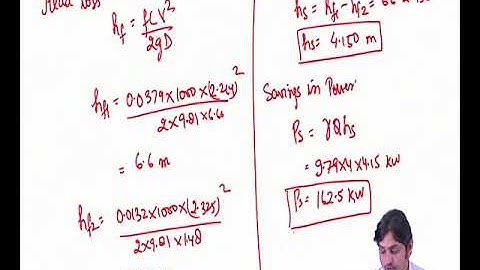 Head loss
hf = fLV²/2gD
hf1 = 0.0379×1000×(2.264)²/2×9.81×6.6
= 6.6 m
hf2 = 0.0132×1000×(2.325)²/2×9.81×1.48
hs = hf1 - hf2 =
hs = 4.150 m
Savings in Power
Ps = γQhs
= 9.79×4×4.15 kW
Ps = 162.5 kW